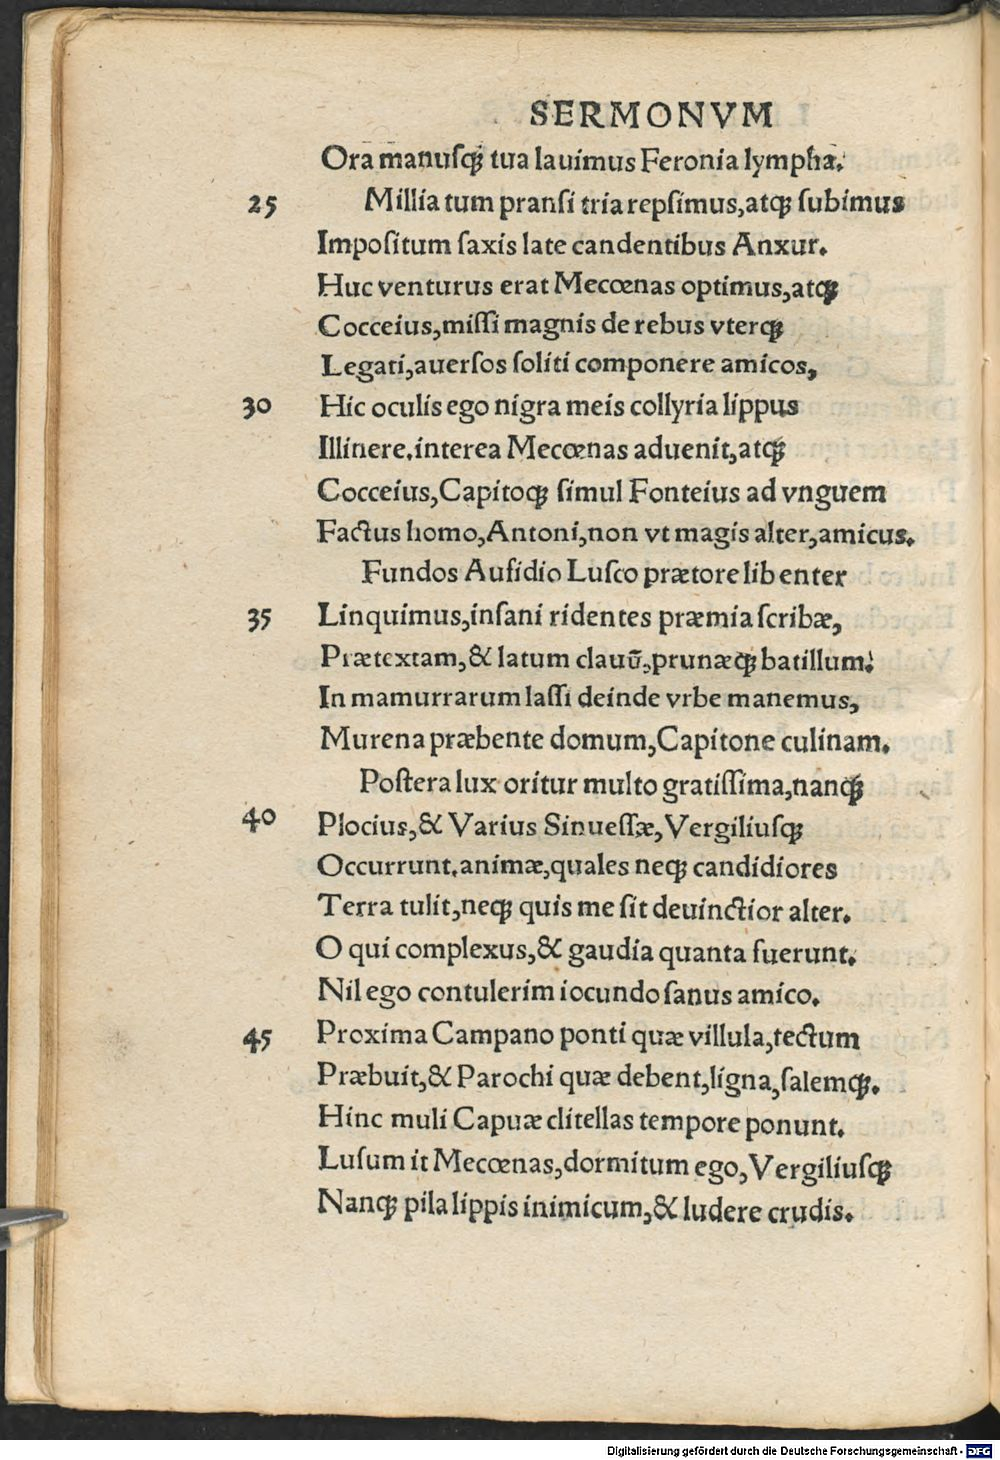 SERMONVM
Ora manuſqꝫ tua lauimus Feronia lympha.
25 Millia tum pranſi tria repſimus,atqꝫ ſubimus
Impoſitum ſaxis late candentibus Anxur.
Huc venturus erat Mecœnas optimus,atqꝫ
Cocceius,miſſi magnis de rebus vterqꝫ
Legati,auerſos ſoliti componere amicos,
30 Hic oculis ego nigra meis collyria lippus
Illinere.interea Mecœnas aduenit,atqꝫ
Cocceius,Capitoqꝫ ſimul Fonteius ad vnguem
Factus homo,Antoni,non vt magis alter,amicus.
Fundos Aufidio Luſco prætore libenter
35 Linquimus,inſani ridentes præmia ſcribæ,
Prætextam,& latum clauū,prunæqꝫ batillum.
In mamurrarum laſſi deinde vrbe manemus,
Murena præbente domum,Capitone culinam.
Poſtera lux oritur multo gratiſſima,nanqꝫ
40 Plocius,& Varius Sinueſſæ,Vergiliuſqꝫ
Occurrunt.animæ,quales neqꝫ candidiores
Terra tulit,neqꝫ quis me ſit deuinctior alter.
O qui complexus,& gaudia quanta fuerunt.
Nil ego contulerim iocundo ſanus amico.
45 Proxima Campano ponti quæ villula,tectum
Præbuit,& Parochi quæ debent,ligna,ſalemqꝫ.
Hinc muli Capuæ clitellas tempore ponunt.
Luſum it Mecœnas,dormitum ego,Vergiliuſqꝫ
Nanqꝫ pila lippis inimicum,& ludere crudis.
Digitalisierung gefördert durch die Deutsche Forschungsgemeinschaft - DFG